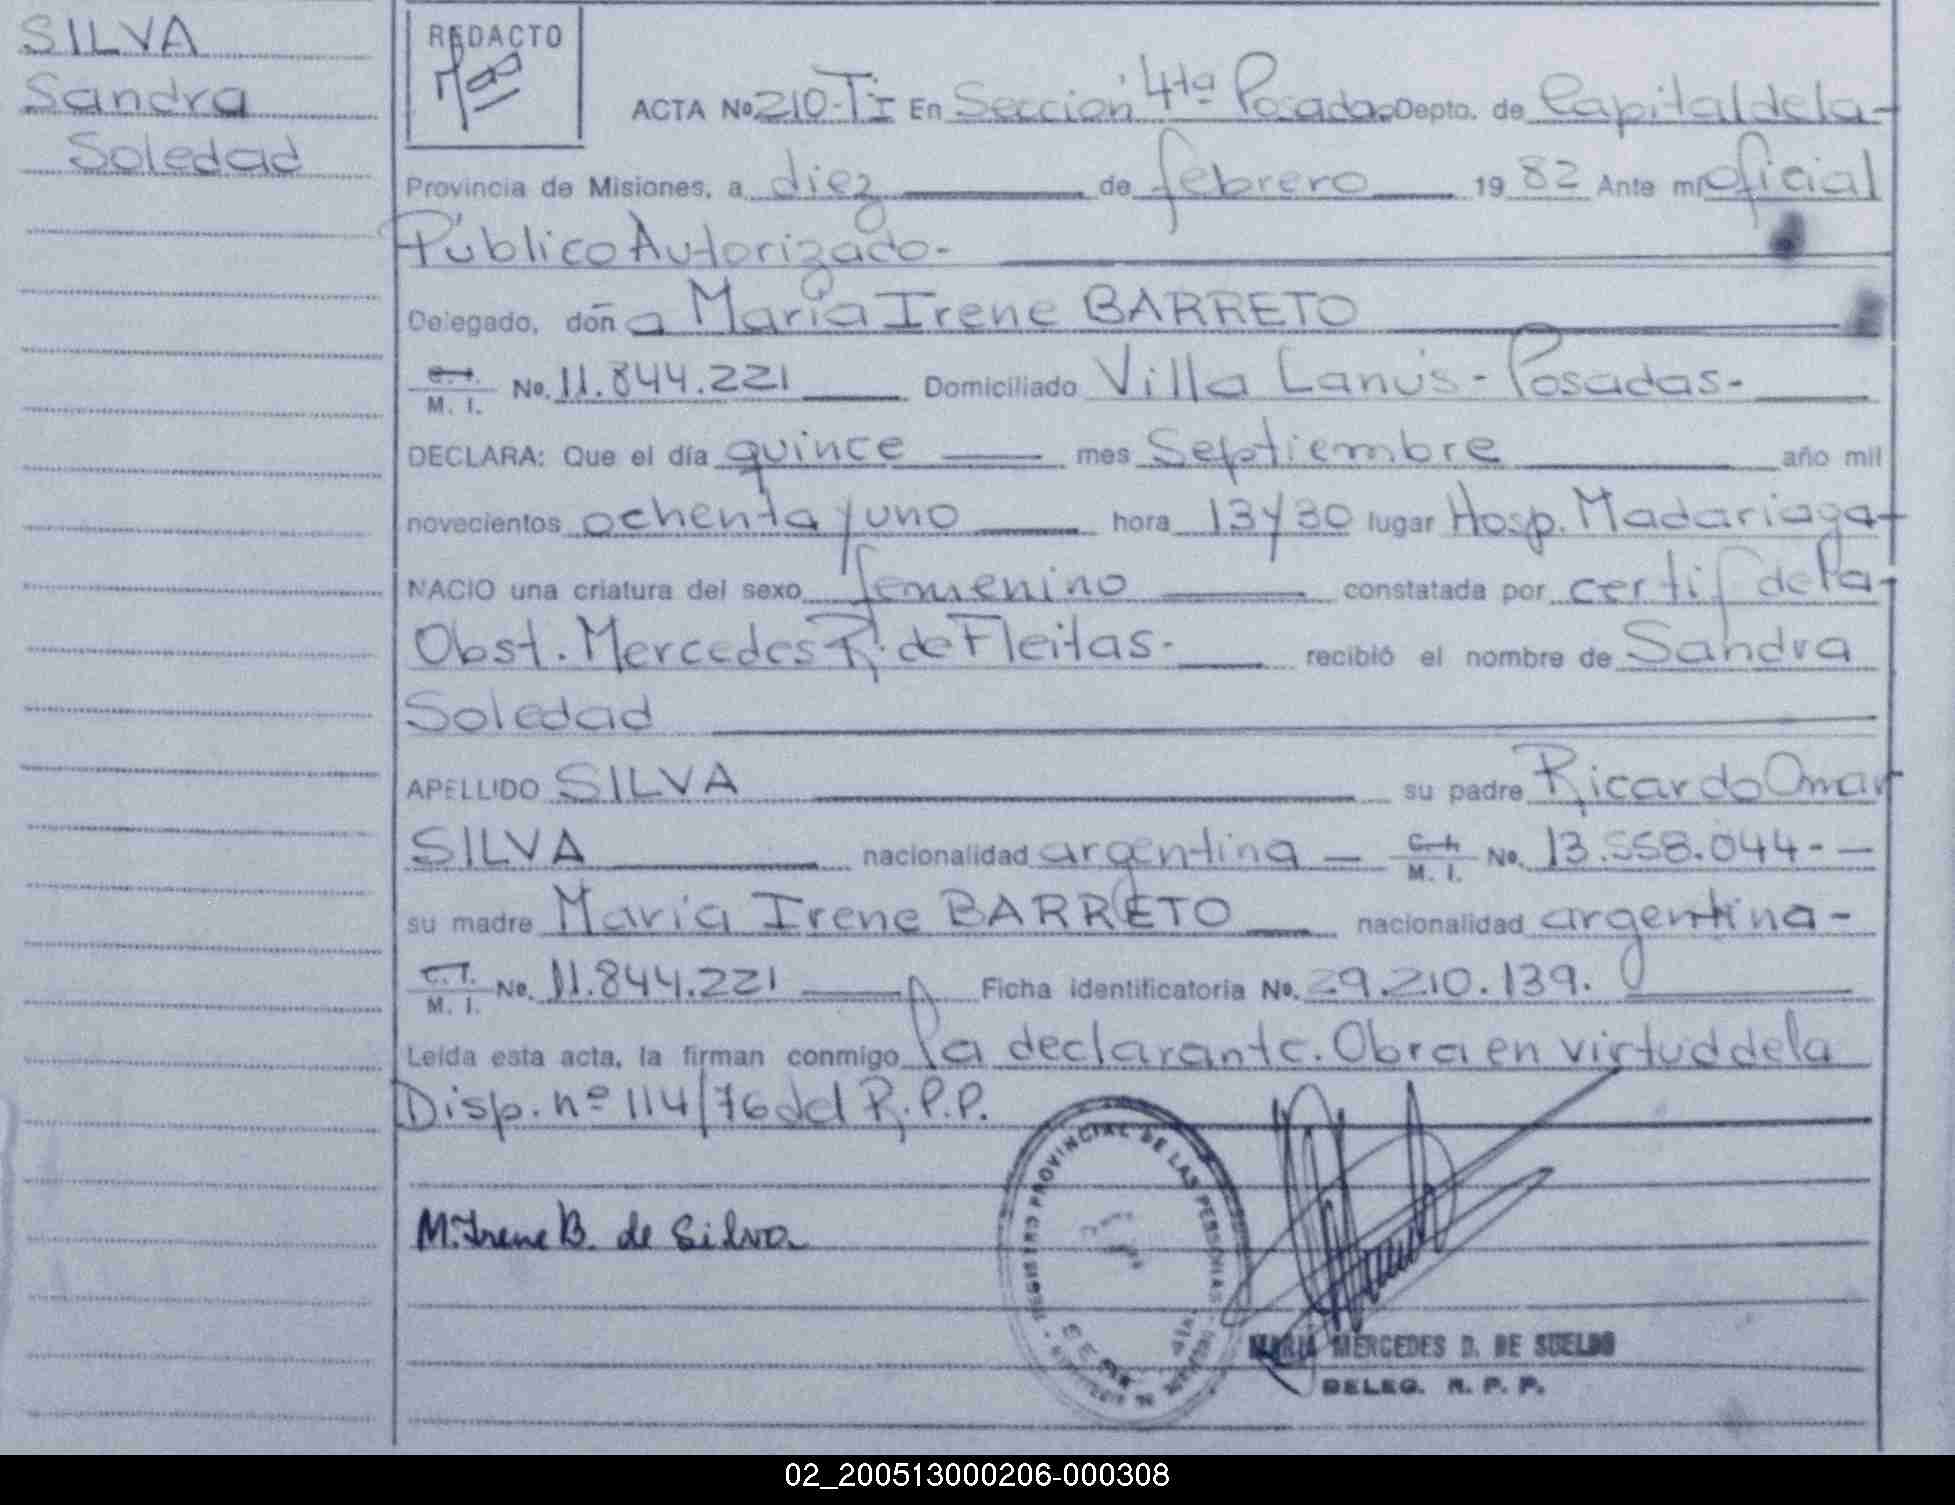 SILVA
Sandra
Soledad
REDACTO
ACTA No 210-TI En Sección 4ta Posadas Depto. de Capital de la-
Provincia de Misiones, a diez de febrero 1982 Ante mi oficial
Público Autorizado-
Delegado, doña María Irene BARRETO
C.I. M. I. No. 11.844.221 Domiciliado Villa Lanús-Posadas-
DECLARA: Que el día quince mes Septiembre año mil
novecientos ochenta y uno hora 13 y 30 lugar Hosp. Madariaga-
NACIO una criatura del sexo femenino constatada por certif de la-
Obst. Mercedes R. de Fleitas- recibió el nombre de Sandra
Soledad
APELLIDO SILVA su padre Ricardo Omar
SILVA nacionalidad argentina — C.I. M. I. No. 13.558.044--
su madre María Irene BARRETO nacionalidad argentina-
C.I. M. I. No. 11.844.221 Ficha identificatoria No. 29.210.139.
Leída esta acta, la firman conmigo la declarante. Obra en virtud de la
Disp. nº 114/76 del R.P.P.
REGISTRO PROVINCIAL DE LAS PERSONAS
M. Irene B. de Silva
MARIA MERCEDES D. DE SUELDO
DELEG. R. P. P.
02_200513000206-000308